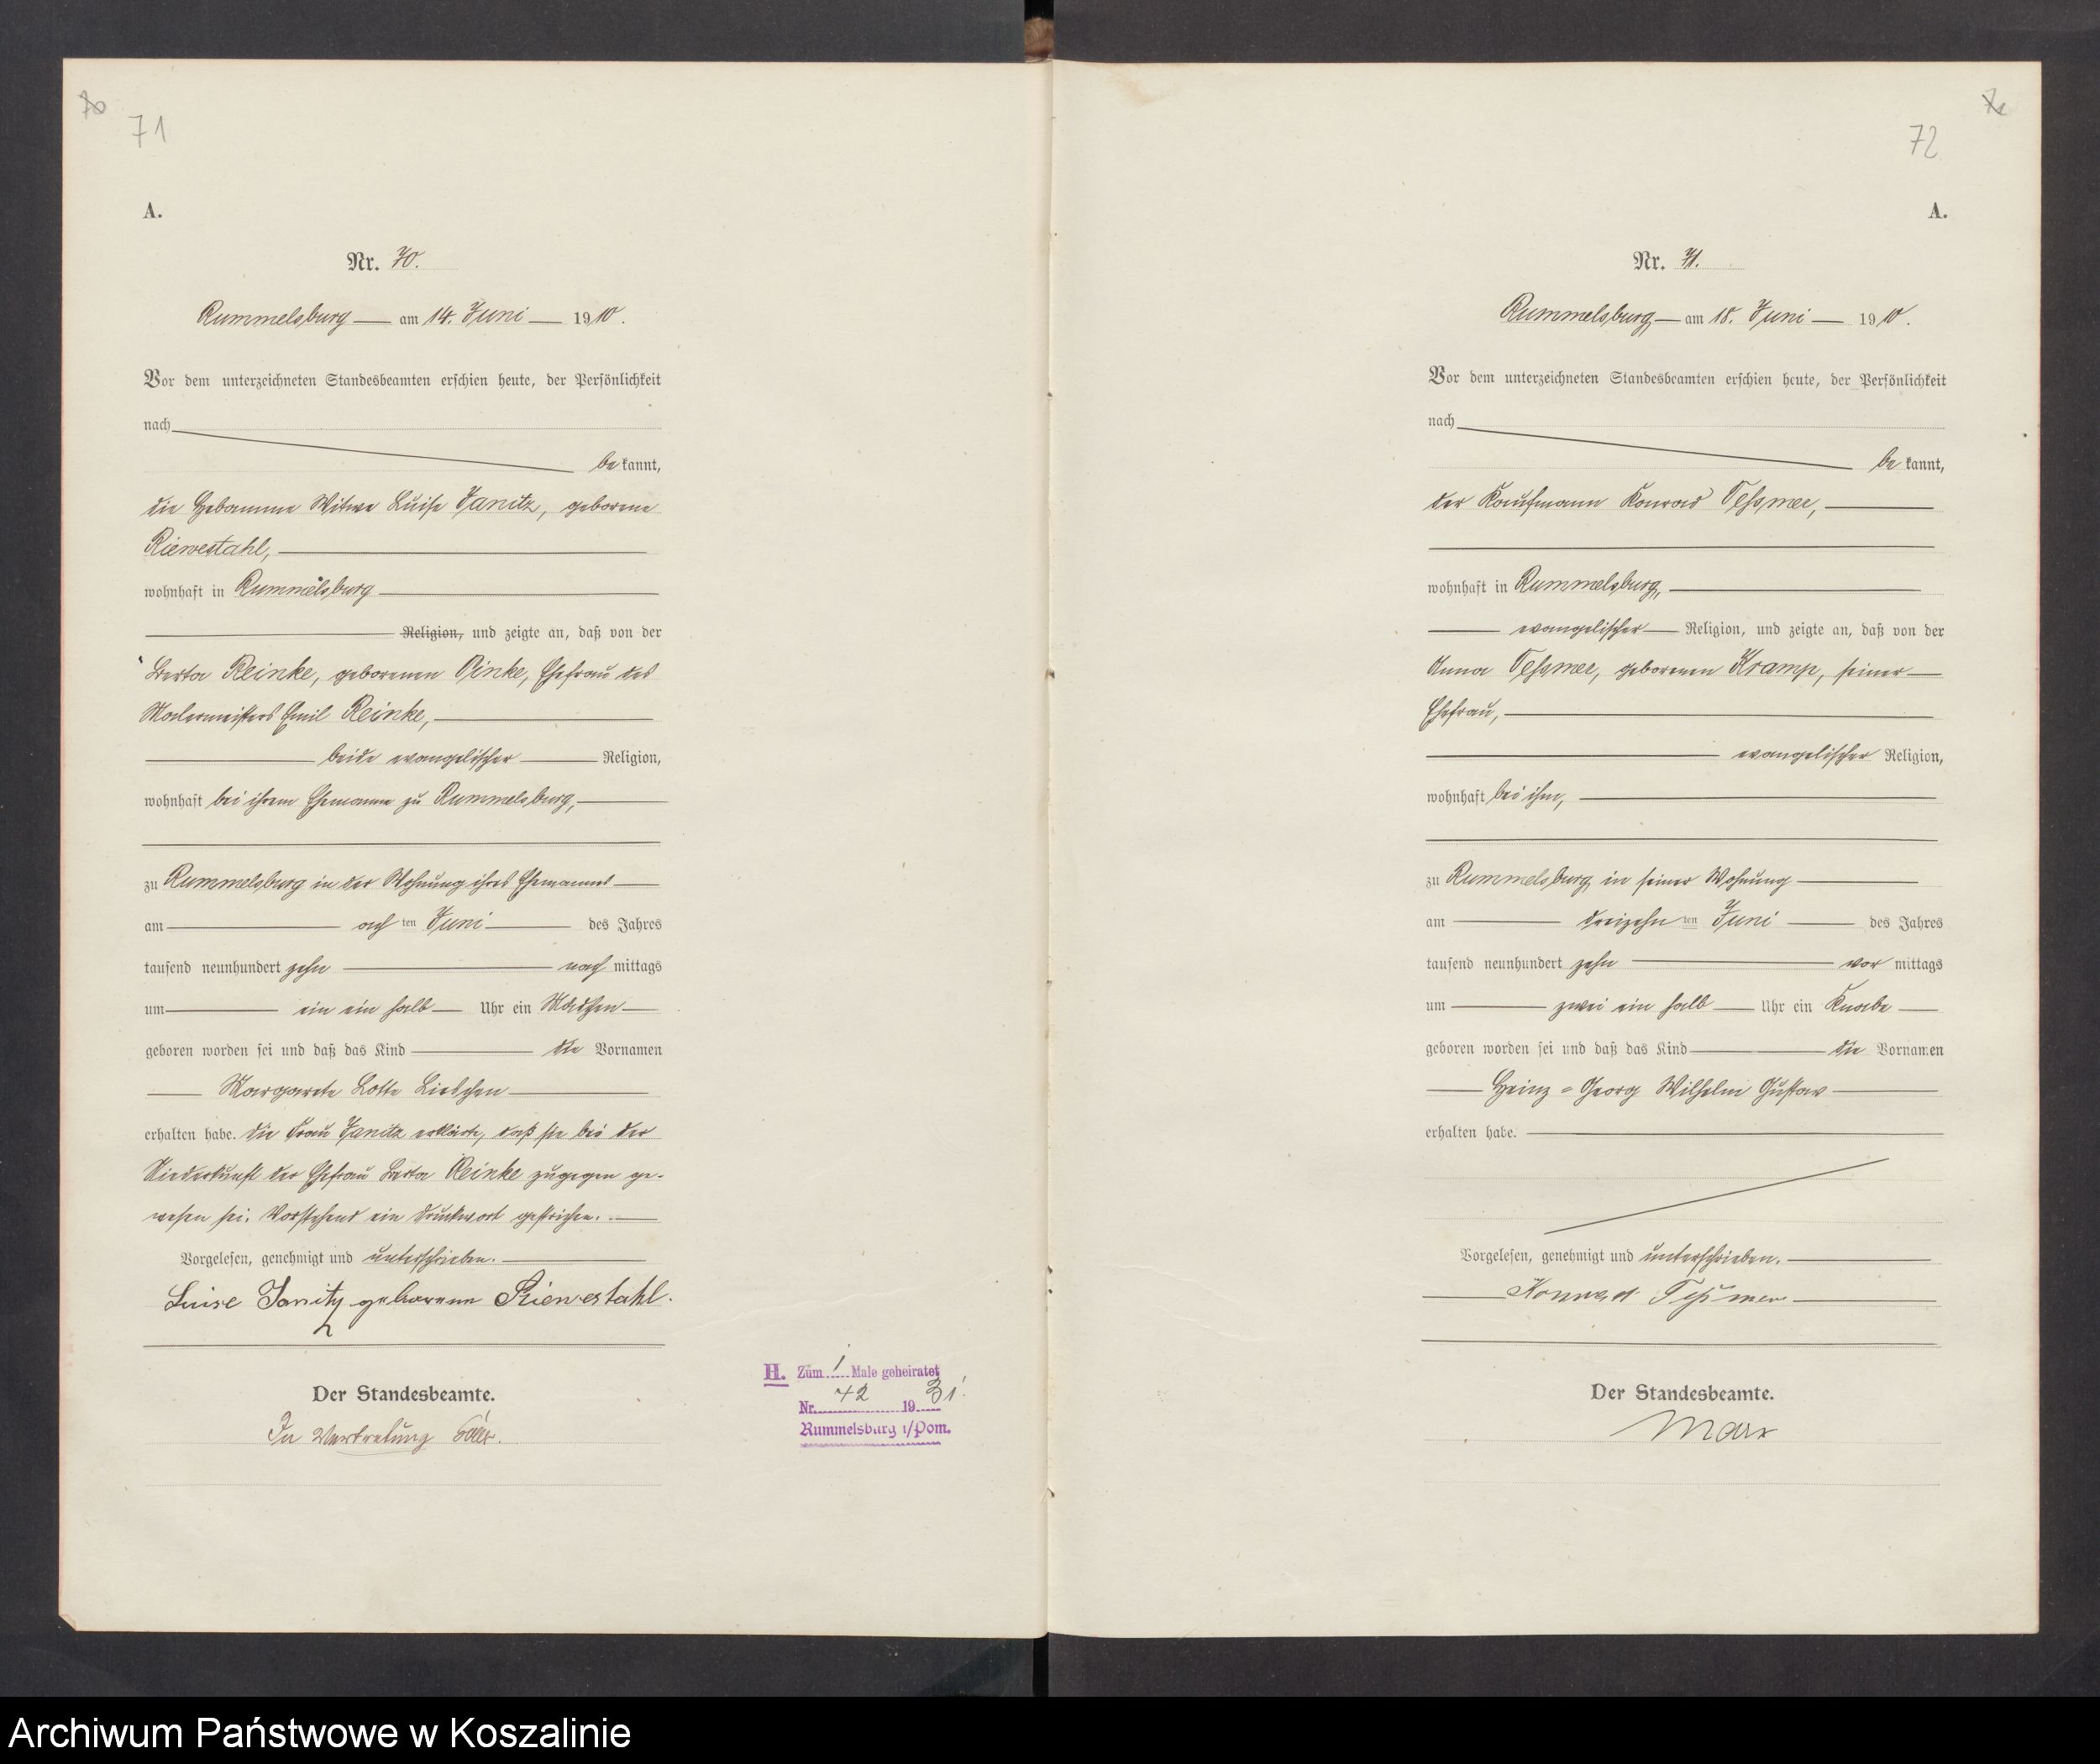 71
A.
Nr. 70.
Rummelsburg am 14. Juni 1910.
Vor dem unterzeichneten Standesbeamten erschien heute, der Persönlichkeit
nach
be kannt,
die Hebamme Witwe Luise Janitz, geborene
Riewestahl,
wohnhaft in Rummelsburg
Religion, und zeigte an, daß von der
Berta Reinke, geborenen Pinke, Ehefrau des
Malermeisters Emil Reinke,
beide evangelischer Religion,
wohnhaft bei ihrem Ehemanne zu Rummelsburg,
zu Rummelsburg in der Wohnung ihres Ehemannes
am ach ten Juni des Jahres
tausend neunhundert zehn nach mittags
um ein ein halb Uhr ein Mädchen
geboren worden sei und daß das Kind die Vornamen
Margarete Lotte Lieschen
erhalten habe. Die Frau Janitz erklärte, daß sie bei der
Niederkunft der Ehefrau Berta Reinke zugegen ge-
wesen sei. Vorstehend ein Druckwort gestrichen.
Vorgelesen, genehmigt und unterschrieben.
Luise Janitz geborene Riewestahl.
Der Standesbeamte.
In Vertretung
H. Zum 1 Male geheiratet
Nr. 42 1931.
Rummelsburg i/Pom.
72
A.
Nr. 71.
Rummelsburg, am 18. Juni 1910.
Vor dem unterzeichneten Standesbeamten erschien heute, der Persönlichkeit
nach
be kannt,
der Kaufmann Konrad Teßmer,
wohnhaft in Rummelsburg,
evangelischer Religion, und zeigte an, daß von der
Anna Teßmer, geborenen Kramp, seiner
Ehefrau,
evangelischer Religion,
wohnhaft bei ihm,
zu Rummelsburg, in seiner Wohnung
am dreizehn ten Juni des Jahres
tausend neunhundert zehn vor mittags
um zwei ein halb Uhr ein Knabe
geboren worden sei und daß das Kind die Vornamen
Heinz = Georg Wilhelm Gustav
erhalten habe.
Vorgelesen, genehmigt und unterschrieben.
Konrad Teßmer
Der Standesbeamte.
Marx
Archiwum Państwowe w Koszalinie